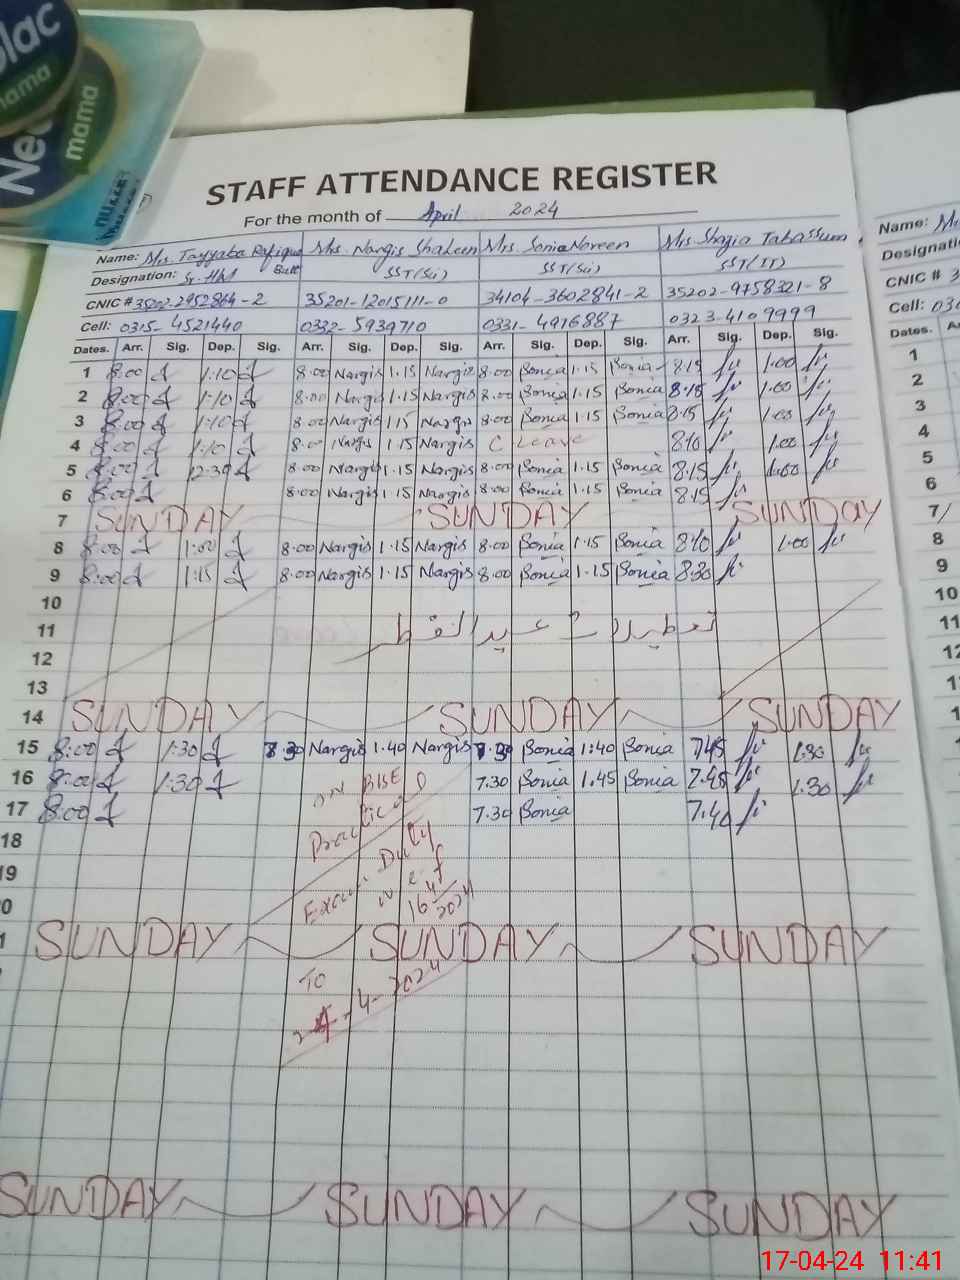 lac
mama
Ne
mama
STAFF ATTENDANCE REGISTER
For the month of April 2024
Name: Mrs. Tayyaba Rafique Butt Mrs. Nargis Shaheen Mrs Sonia Noreen Mrs. Shazia Tabassum
Designation: Sr. HM SST(Sci) SST(Sci) SST(IT)
CNIC # 35202-2952864-2 35201-1201511-0 34104-3602841-2 35202-9758321-8
Cell: 0315-4521440 0332-5939710 0331-4976887 0323-4109999
Dates. Arr. Sig. Dep. Sig. Arr. Sig. Dep. Sig. Arr. Sig. Dep. Sig. Arr. Sig. Dep. Sig.
1 8:00 1:10 8:00 Nargis 1.15 Nargis 8:00 Sonia 1.15 Sonia 8.15 1.00
2 8:00 1:10 8:00 Nargis 1.15 Nargis 8:00 Sonia 1.15 Sonia 8.15 1.00
3 8:00 1:10 8:00 Nargis 1.15 Nargis 8:00 Sonia 1.15 Sonia 8.15 1.00
4 8:00 1:10 8:00 Nargis 1.15 Nargis C Leave 8.10 1.00
5 8:00 12:30 8:00 Nargis 1.15 Nargis 8:00 Sonia 1.15 Sonia 8.15 1.00
6 8:00 8:00 Nargis 1.15 Nargis 8:00 Sonia 1.15 Sonia 8.15
7 SUNDAY SUNDAY SUNDAY
8 8:00 1:00 8:00 Nargis 1.15 Nargis 8:00 Sonia 1.15 Sonia 8.10 1.00
9 8:00 1:15 8:00 Nargis 1.15 Nargis 8:00 Sonia 1.15 Sonia 8.30
10
11 تعطیلات عیدالفطر
12
13
14 SUNDAY SUNDAY SUNDAY
15 8:00 1:30 7.30 Nargis 1.40 Nargis 7.30 Sonia 1:40 Sonia 7.45 1.30
16 8:00 1:30 on BISE 7.30 Sonia 1.45 Sonia 7.45 1.30
17 8:00 Practical 7.30 Sonia 7.40
18 Exam Duty
19 w.e.f
0 16/4/2024
1 SUNDAY SUNDAY SUNDAY
To
-4-2024
SUNDAY SUNDAY SUNDAY
Name: M
Designati
CNIC # 3
Cell: 030
Dates. A
1
2
3
4
5
6
7
8
9
10
11
12
17-04-24 11:41